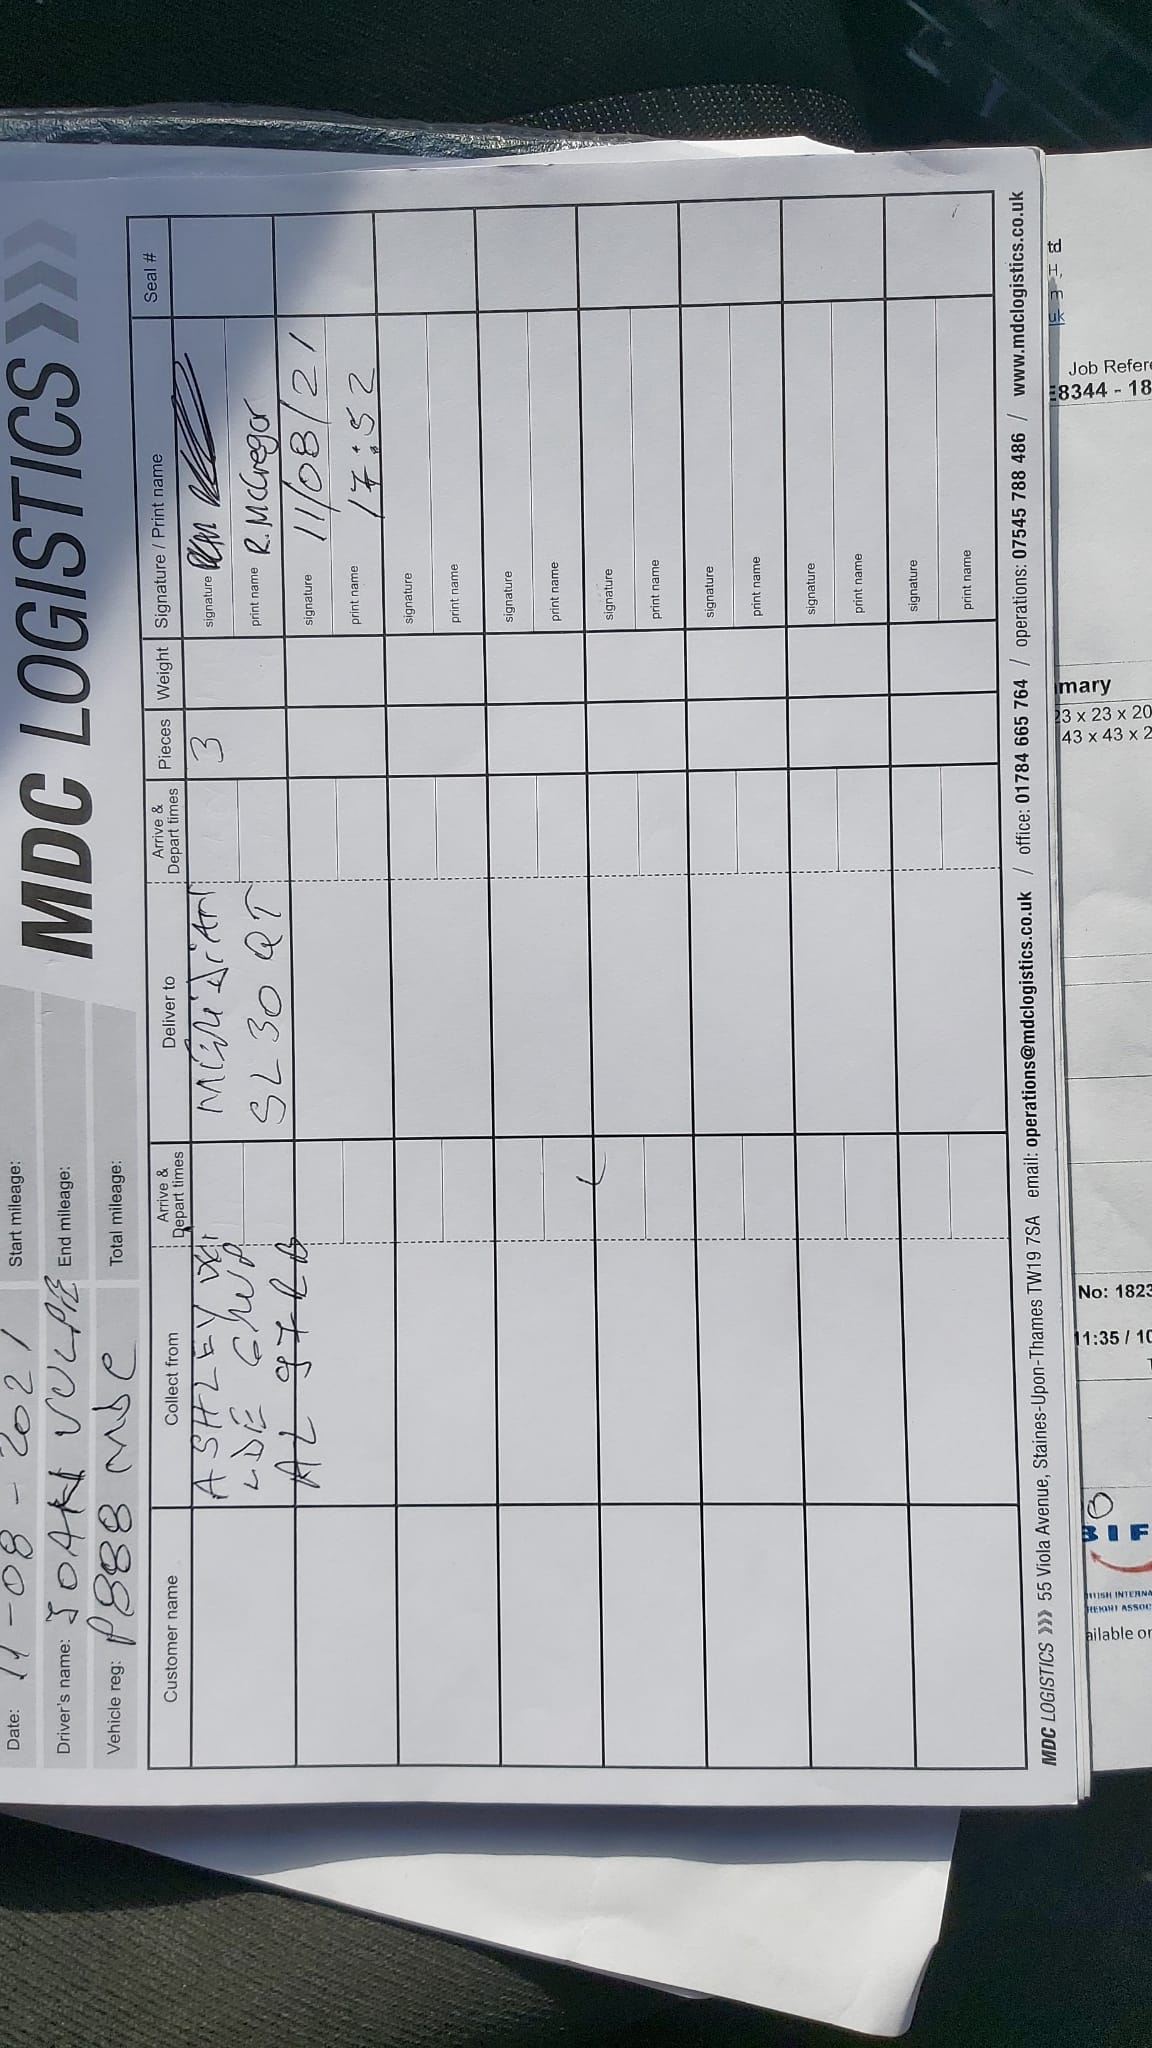 MDC LOGISTICS
Date: 11-08-2021
Start mileage:
Driver's name: IOAN VULPE
End mileage:
Vehicle reg: P888 MDC
Total mileage:
Customer name
Collect from
Arrive & Depart times
Deliver to
Arrive & Depart times
Pieces
Weight
Signature / Print name
Seal #
ASHLEY
MERIDIAN
3
signature
SL 30 QT
print name R. McGregor
AL 97
signature 11/08/21
print name 17:52
signature
print name
signature
print name
signature
print name
signature
print name
signature
print name
signature
print name
MDC LOGISTICS >>> 55 Viola Avenue, Staines-Upon-Thames TW19 7SA email: operations@mdclogistics.co.uk / office: 01784 665 764 / operations: 07545 788 486 / www.mdclogistics.co.uk
td
H,
m
uk
Job Refere
E8344 - 18
mmary
23 x 23 x 20
43 x 43 x 2
No: 1823
11:35 / 10
BIF
ITISH INTERNA
REIGHT ASSOC
ailable on